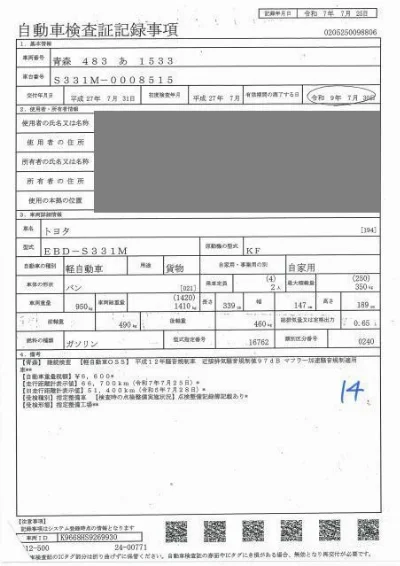 記録年月日 令和 7年 7月 25日
自動車検査証記録事項 0205250098806
1．基本情報
車両番号 青森 483 あ 1533
車台番号 S331M-0008515
交付年月日 平成 27年 7月 31日 初度検査年月 平成 27年 7月 有効期間の満了する日 令和 9年 7月 30日
2．使用者・所有者情報
使用者の氏名又は名称
使用者の住所
所有者の氏名又は名称
所有者の住所
使用の本拠の位置
3．車両詳細情報
車名 トヨタ [194]
型式 EBD-S331M 原動機の型式 KF
自動車の種別 軽自動車 用途 貨物 自家用・事業用の別 自家用
車体の形状 バン [021] 乗車定員 (4) 2人 最大積載量 (250) 350kg
車両重量 950kg 車両総重量 (1420) 1410kg 長さ 339cm 幅 147cm 高さ 189cm
前軸重 490kg 後軸重 460kg 総排気量又は定格出力 0.65
燃料の種類 ガソリン 型式指定番号 16762 類別区分番号 0240
4．備考
【青森】 継続検査 【軽自動車OSS】 平成12年騒音規制車 近接排気騒音規制値97dB マフラー加速騒音規制適用
車**
【自動車重量税額】¥6,600*
【走行距離計表示値】66,700km（令和7年7月25日）*
【旧走行距離計表示値】51,400km（令和5年7月28日）*
【受検種別】指定整備車 【検査時の点検整備実施状況】点検整備記録簿記載あり*
【受検形態】指定整備工場**
14
【注意事項】
記録事項はシステム登録時点の情報となります
車両ID K9668HS9269930
12-500 24-00771